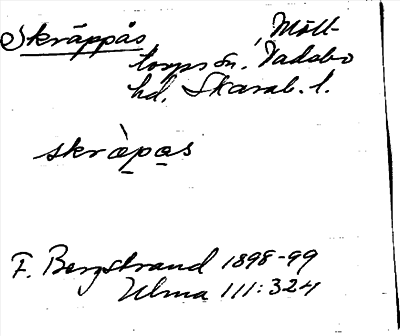 Skräppås, Mölltorps sn, Vadsbo
hd, Skarab. l.
skràpas
F. Bergstrand 1898-99
Ulma 111:324